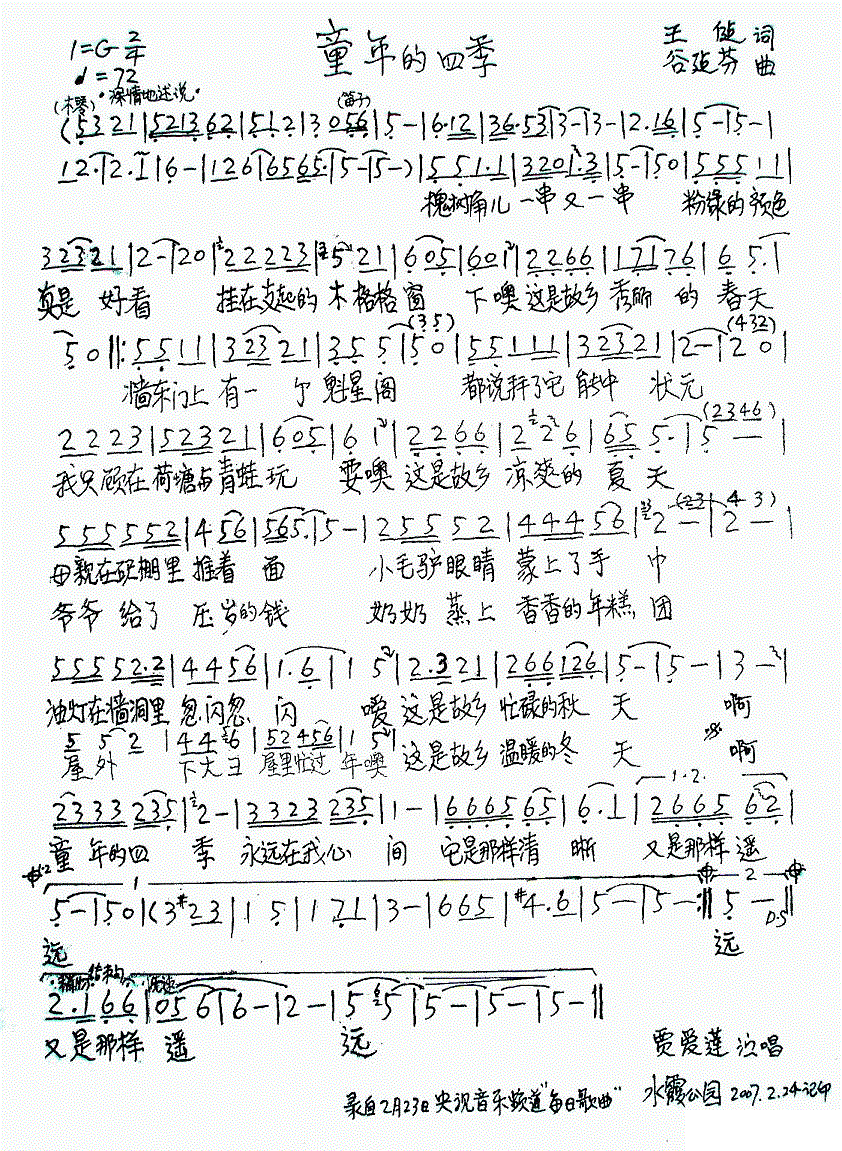 童年的四季
1=G 2/4
♩=72
王健 词
谷建芬 曲
(木琴) "深情地述说" (笛子)
(5321|521362|5123|3056|5-|6·12|36·53|3-|3-|2·16|5-|5-|
12·|2·1|6-|126|6565·|5-|5-)|551·1|3201·3|5-|50|55511|
槐树角儿 一串又一串 粉绿的颜色
32321|2-|20|22223|5·21|605|601|2266|17176|65·|
真是 好看 挂在支起的 木格格窗 下噢 这是故乡 秀丽 的 春天
50‖:5511|32321|355|50(35)|55111|32321|2-|20(432)|
墙东门上 有一 个 魁星阁 都说拜了它 能中 状元
2223|52321|605|61|2266|226|655·|5-(2346)|
我只顾在荷塘与青蛙玩 耍噢 这是故乡 凉爽的 夏天
555552|456|565·|5-|25552|44456|2-(23|2-43)|
母亲在砚棚里 推着 面 小毛驴眼睛 蒙上了手 巾
爷爷 给了 压岁的钱 奶奶 蒸上 香香的年糕 团
55552·2|4456|1·6|15|2·321|266126|5-|5-|3-|
油灯在墙洞里 忽闪忽 闪 噯 这是故乡 忙碌的秋 天 啊
552|446|52456|15|
屋外 下大雪 屋里忙过 年噢 这是故乡 温暖的冬 天 啊
2333235|2-|3323235|1-|666565|6·1|266562|
童 年的四 季 永远在我心 间 它是那样清 晰 又是那样遥
5-|50|(3#23|15|121|3-|665|#4·6|5-|5-:‖5-‖ D.S
远 远
结束句
2·166|056|6-|2-|55|5-|5-|5-‖
又是那样 遥 远
贾爱莲 演唱
录自2月23日央视音乐频道"每日歌曲" 水霞公园 2007.2.24记印